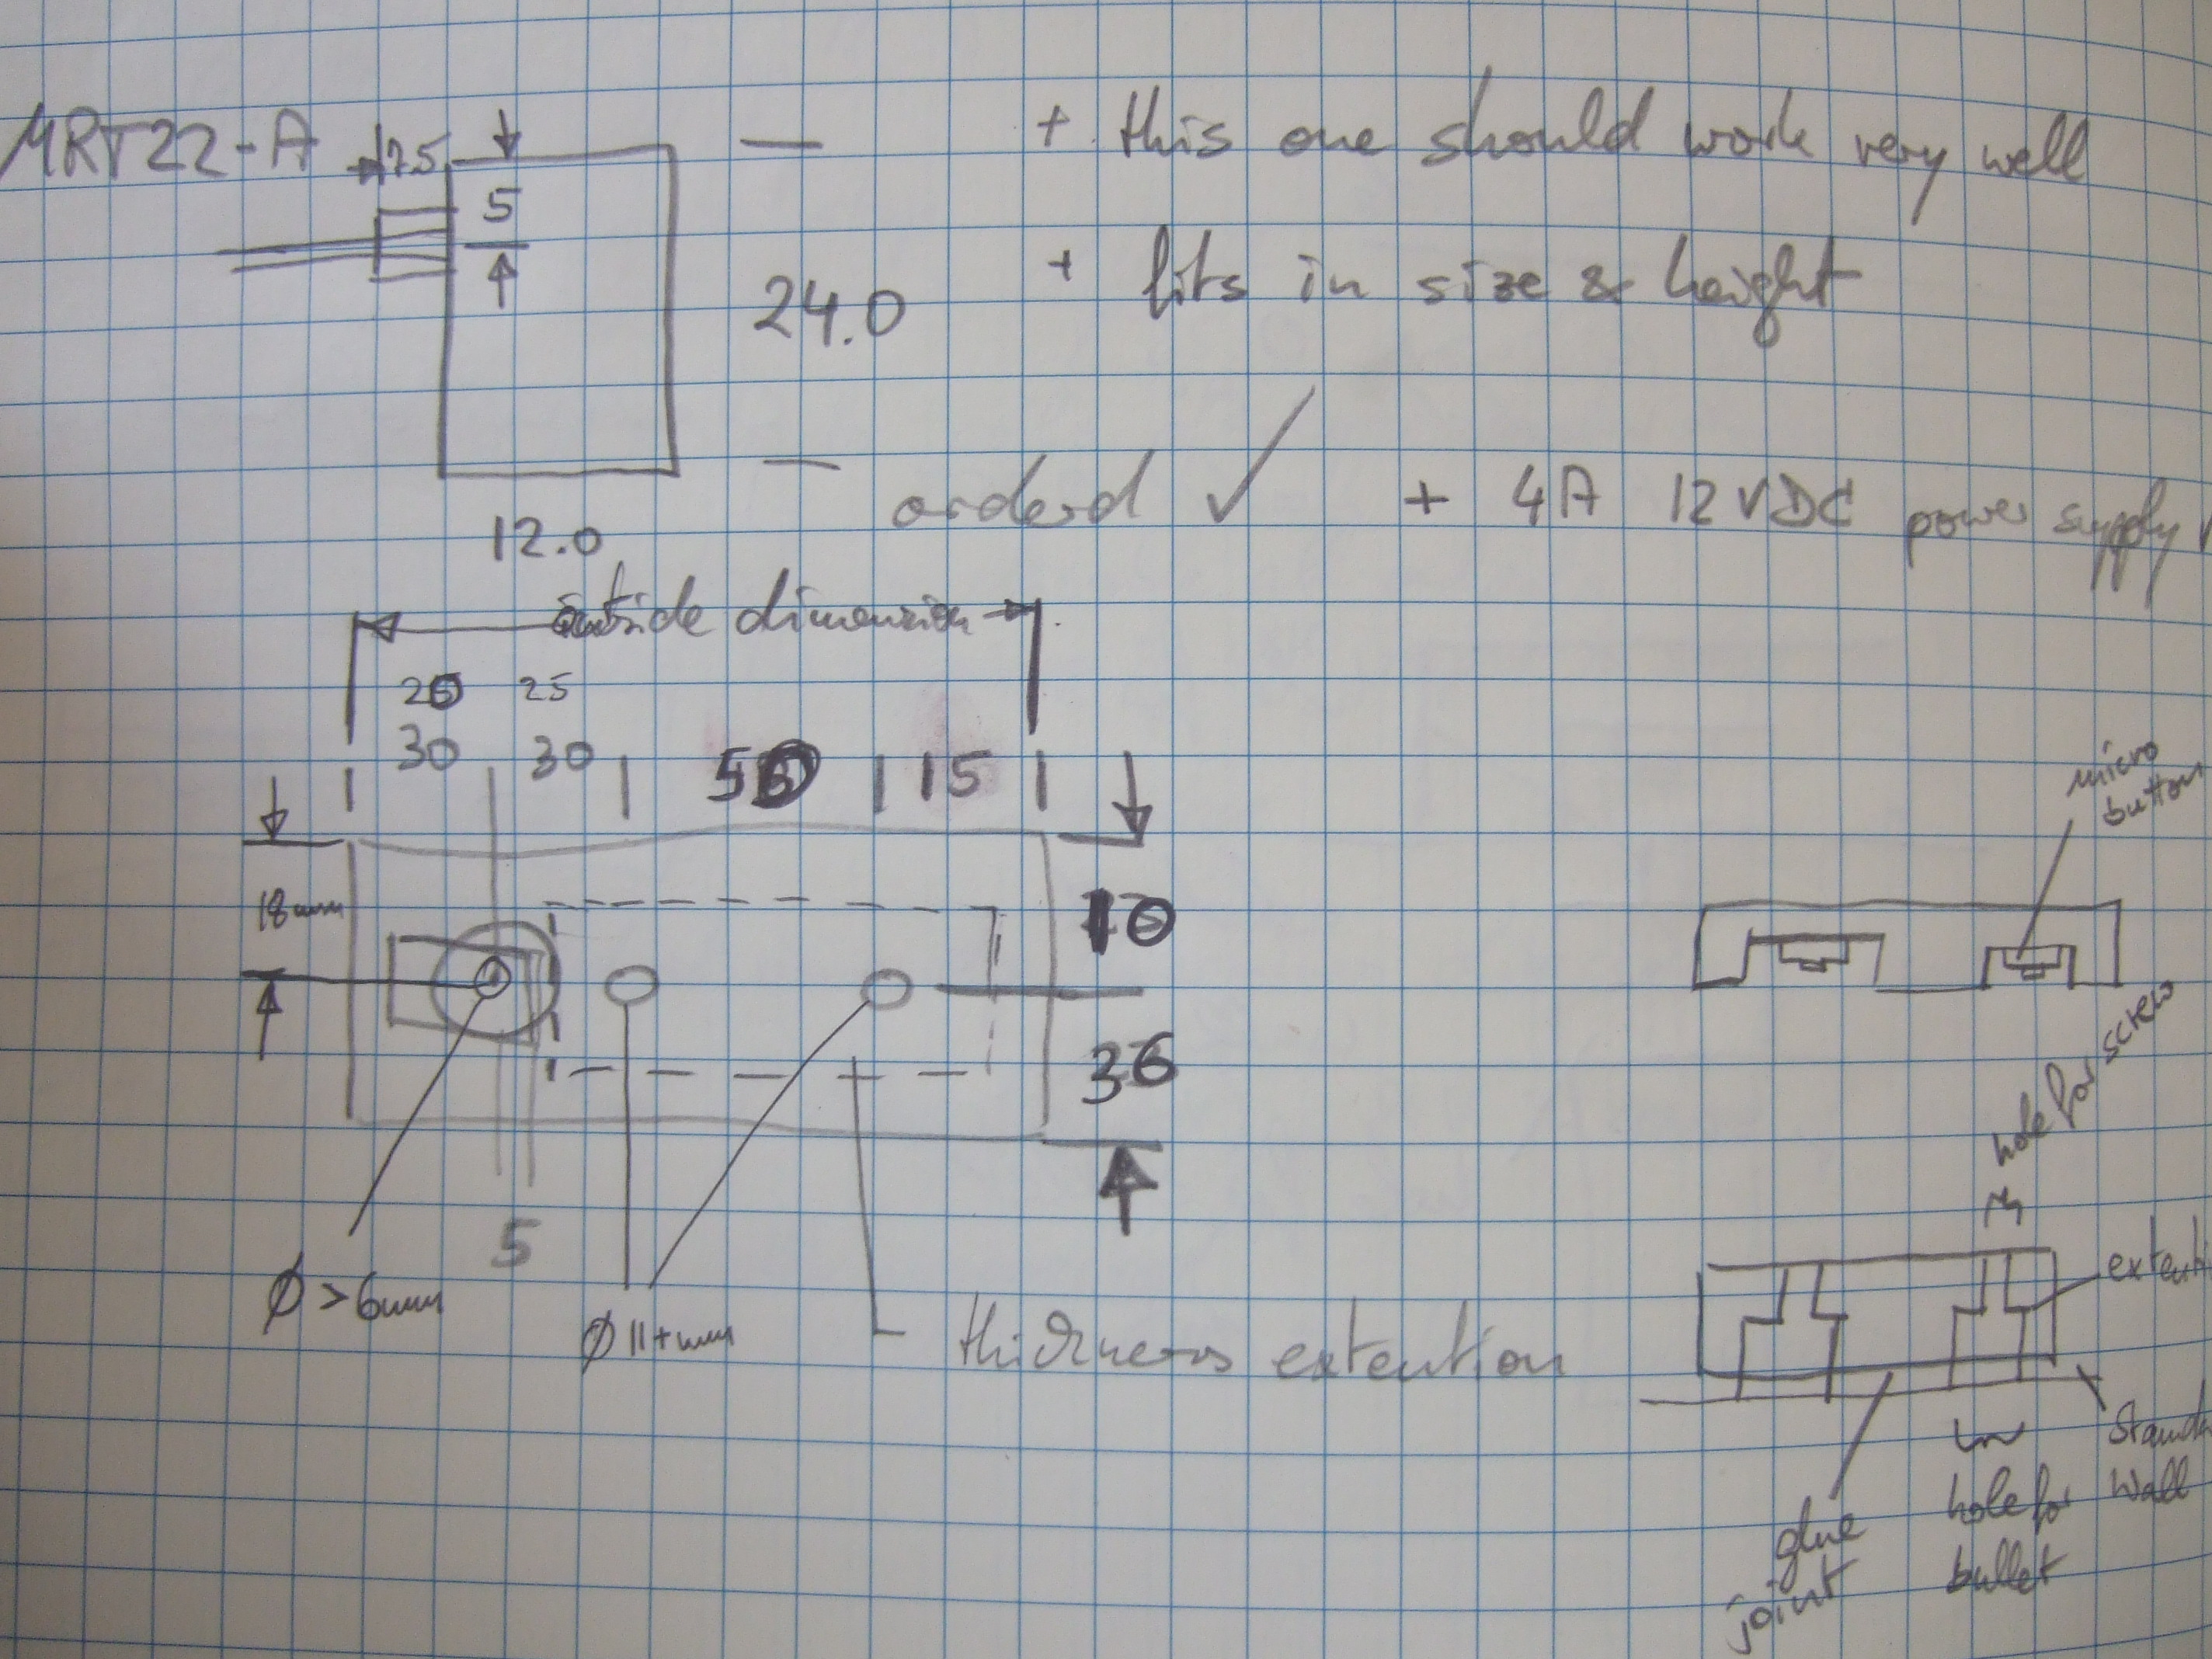 MRT22-A 7.5 + this one should work very well
5
24.0 + fits in size & height
orderd ✓ + 4A 12VDC power supply
12.0
outside dimension
25
30 30 15
micro
button
18mm
10
36
hole for screw
5
Ø >6mm
Ø 11+mm
thickness extention
glue
joint
hole for
bullet
Wall